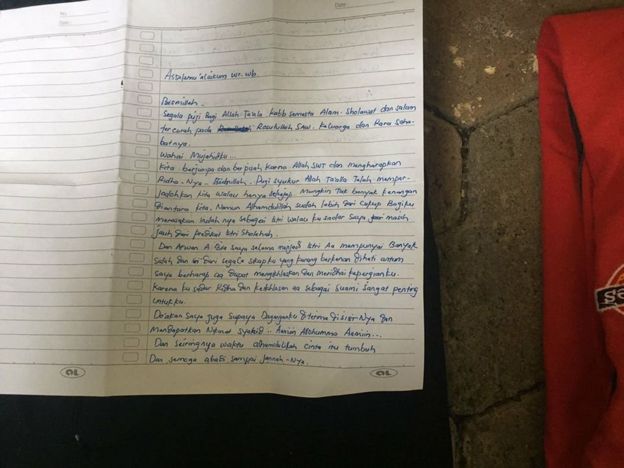 No:
Date:
Date:
Assalamu'alaikum wr. wb
Bismillah.
Segala puji bagi Allah Ta'ala Rabb semesta Alam. Sholawat dan salam
tercurah pada Rosulullah SAW. Keluarga dan Para Saha-
batnya.
Wahai Mujahidku...
Kita berjumpa dan berpisah karena Allah SWT dan mengharapkan
Ridho-Nya. Puji syukur Allah Ta'alla Telah memper-
jodohkan kita walau hanya Mungkin Tak banyak kenangan
diantara kita. Namun Alhamdulillah sudah lebih dari cukup Bagiku
merasakan indah nya sebagai istri walau ku sadar saya masih
jauh dari predikat istri sholehah.
Dan Bila saya selama menjadi istri Aa mempunyai Banyak
salah dan dari segala sikapku yang kurang berkenan dihati antum
Saya berharap aa dapat mengikhlaskan dan meridhai kepergianku.
Karena ku sadar Ridho dan keikhlasan aa sebagai suami sangat penting
untukku.
Do'akan saya juga supaya diterima disisi-Nya dan
Mendapatkan Nikmat syahid.. Aamiin Allohumma Aamiin...
Dan seiringnya waktu alhamdulillah cinta itu tumbuh
Dan semoga abadi sampai Jannah-Nya.